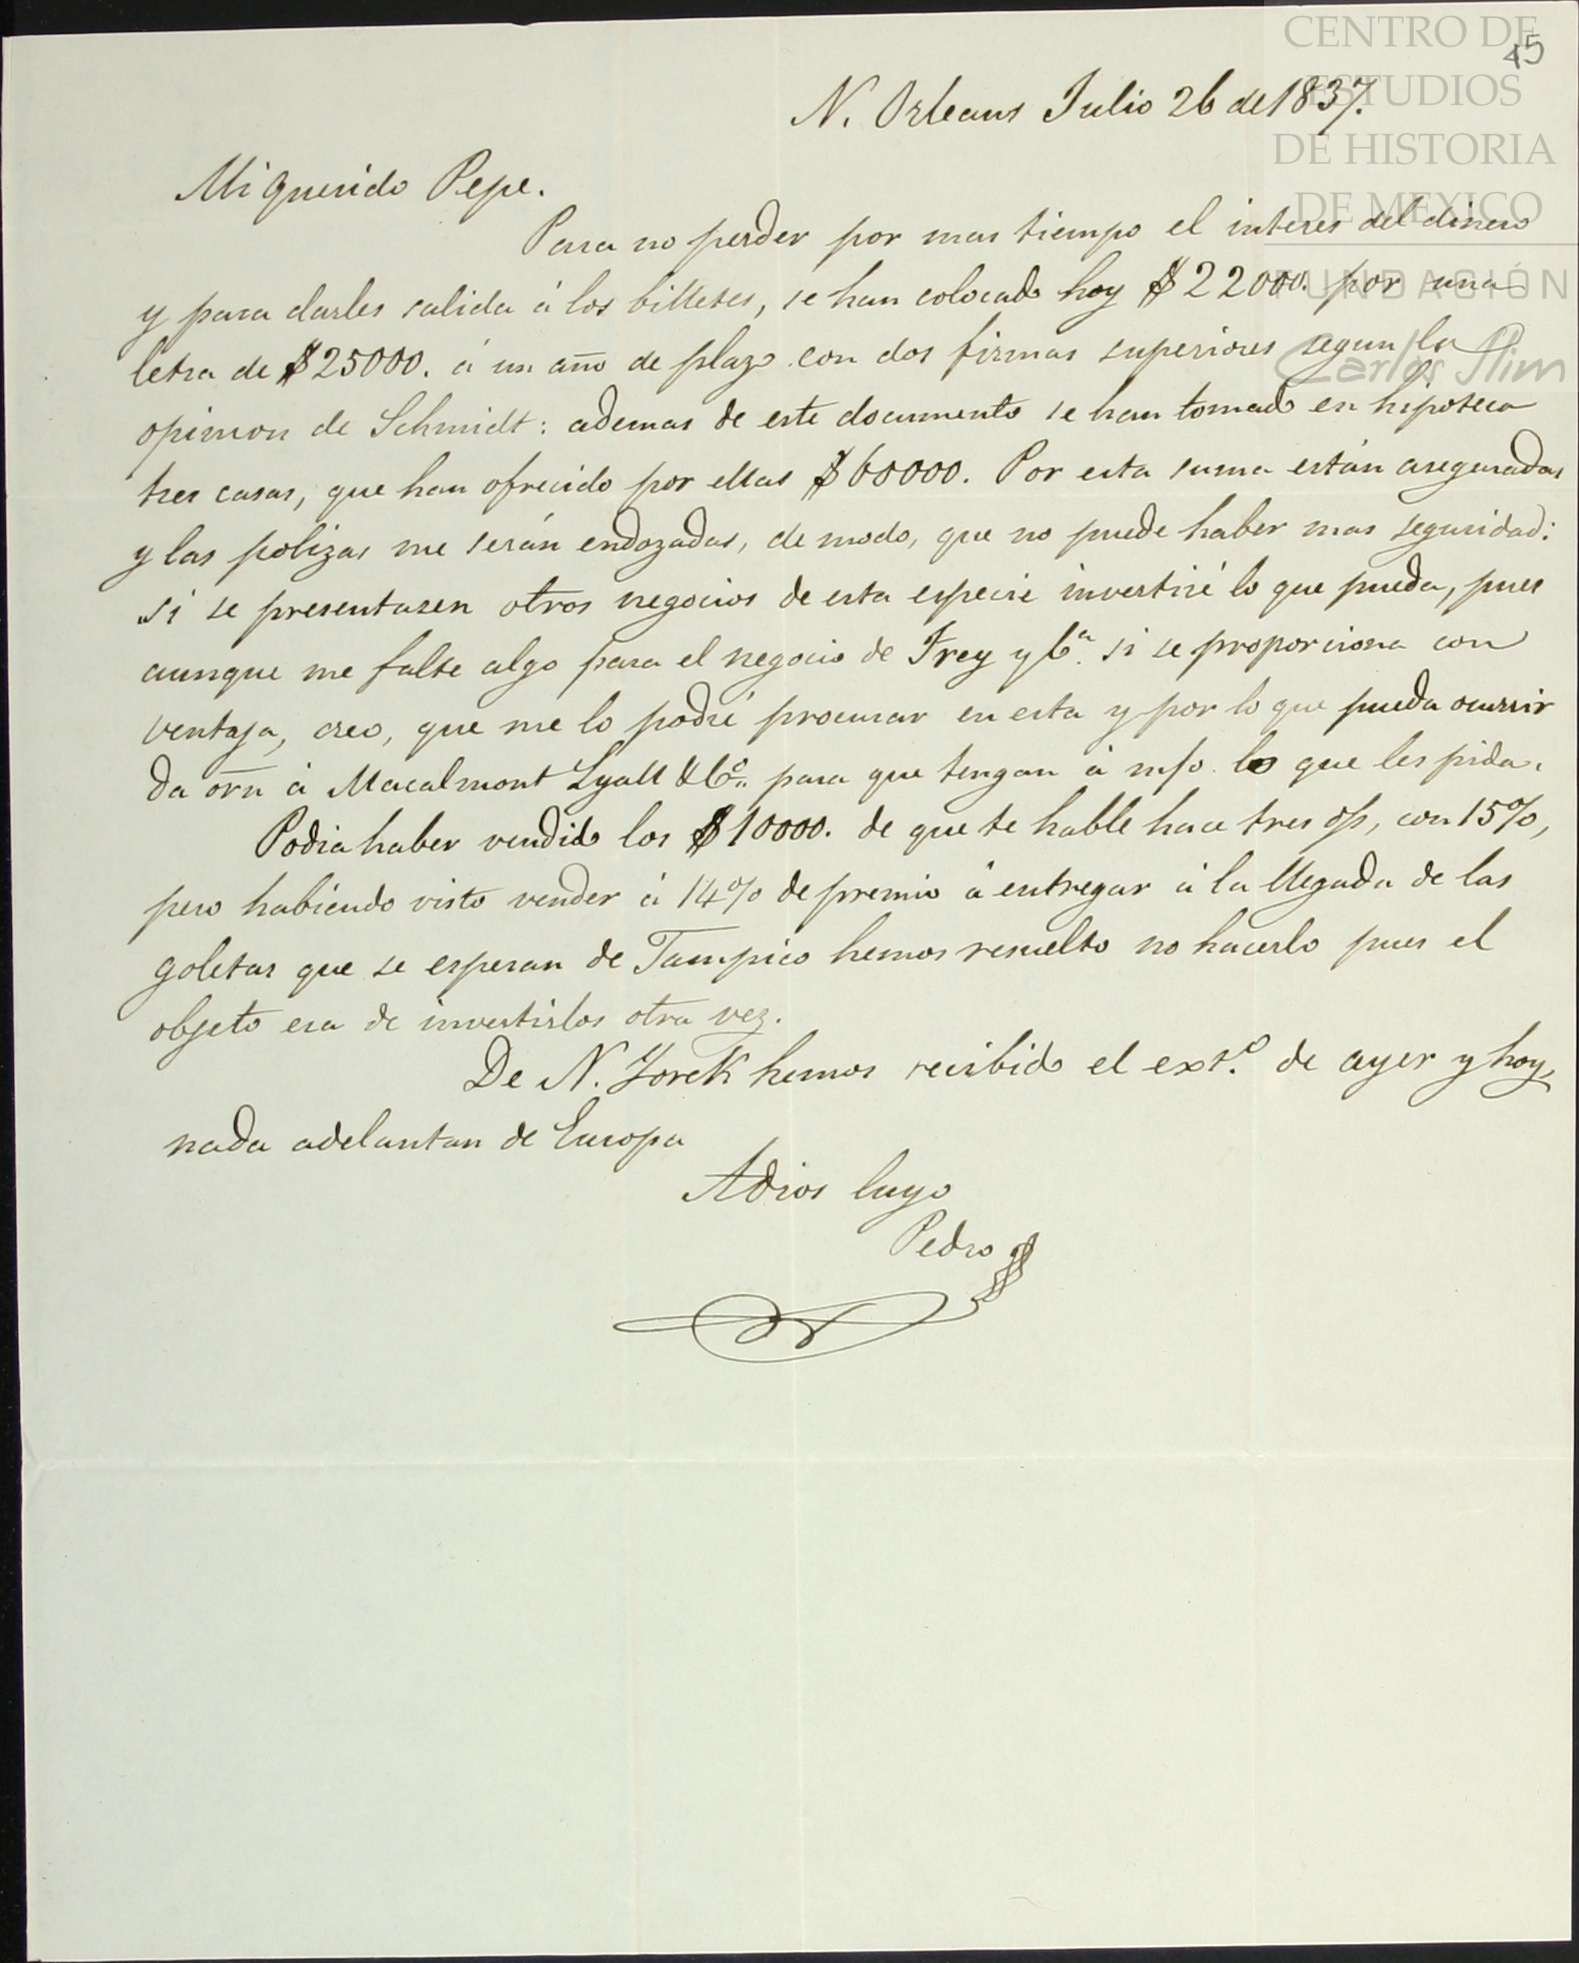 CENTRO DE
ESTUDIOS
DE HISTORIA
DE MEXICO
FUNDACIÓN
Carlos Slim
45
N. Orleans Julio 26 de 1837.
Mi querido Pepe.
Para no perder por mas tiempo el interes del dinero
y para darles salida á los billetes, se han colocado hoy $22000. por una
letra de $25000. á un año de plazo con dos firmas superiores segun la
opinion de Schmidt: ademas de este documento se han tomado en hipoteca
tres casas, que han ofrecido por ellas $60000. Por esta suma están aseguradas
y las polizas me serán endozadas, de modo, que no puede haber mas seguridad:
si se presentasen otros negocios de esta especie invertiré lo que pueda, pues
aunque me falte algo para el negocio de Frey y Cª. si se proporciona con
ventaja, creo, que me lo podré procurar en esta y por lo que pueda ocurrir
da orn á Macalmont Lyall & Cº. para que tengan á m/o. lo que les pida.
Podia haber vendido los $10000. de que te hable hace tres d/s, con 15%,
pero habiendo visto vender á 14% de premio á entregar á la llegada de las
goletas que se esperan de Tampico hemos resuelto no hacerlo pues el
objeto era de invertirlos otra vez.
De N. Yorck hemos recibido el extº. de ayer y hoy,
nada adelantan de Europa
Adios tuyo
Pedro